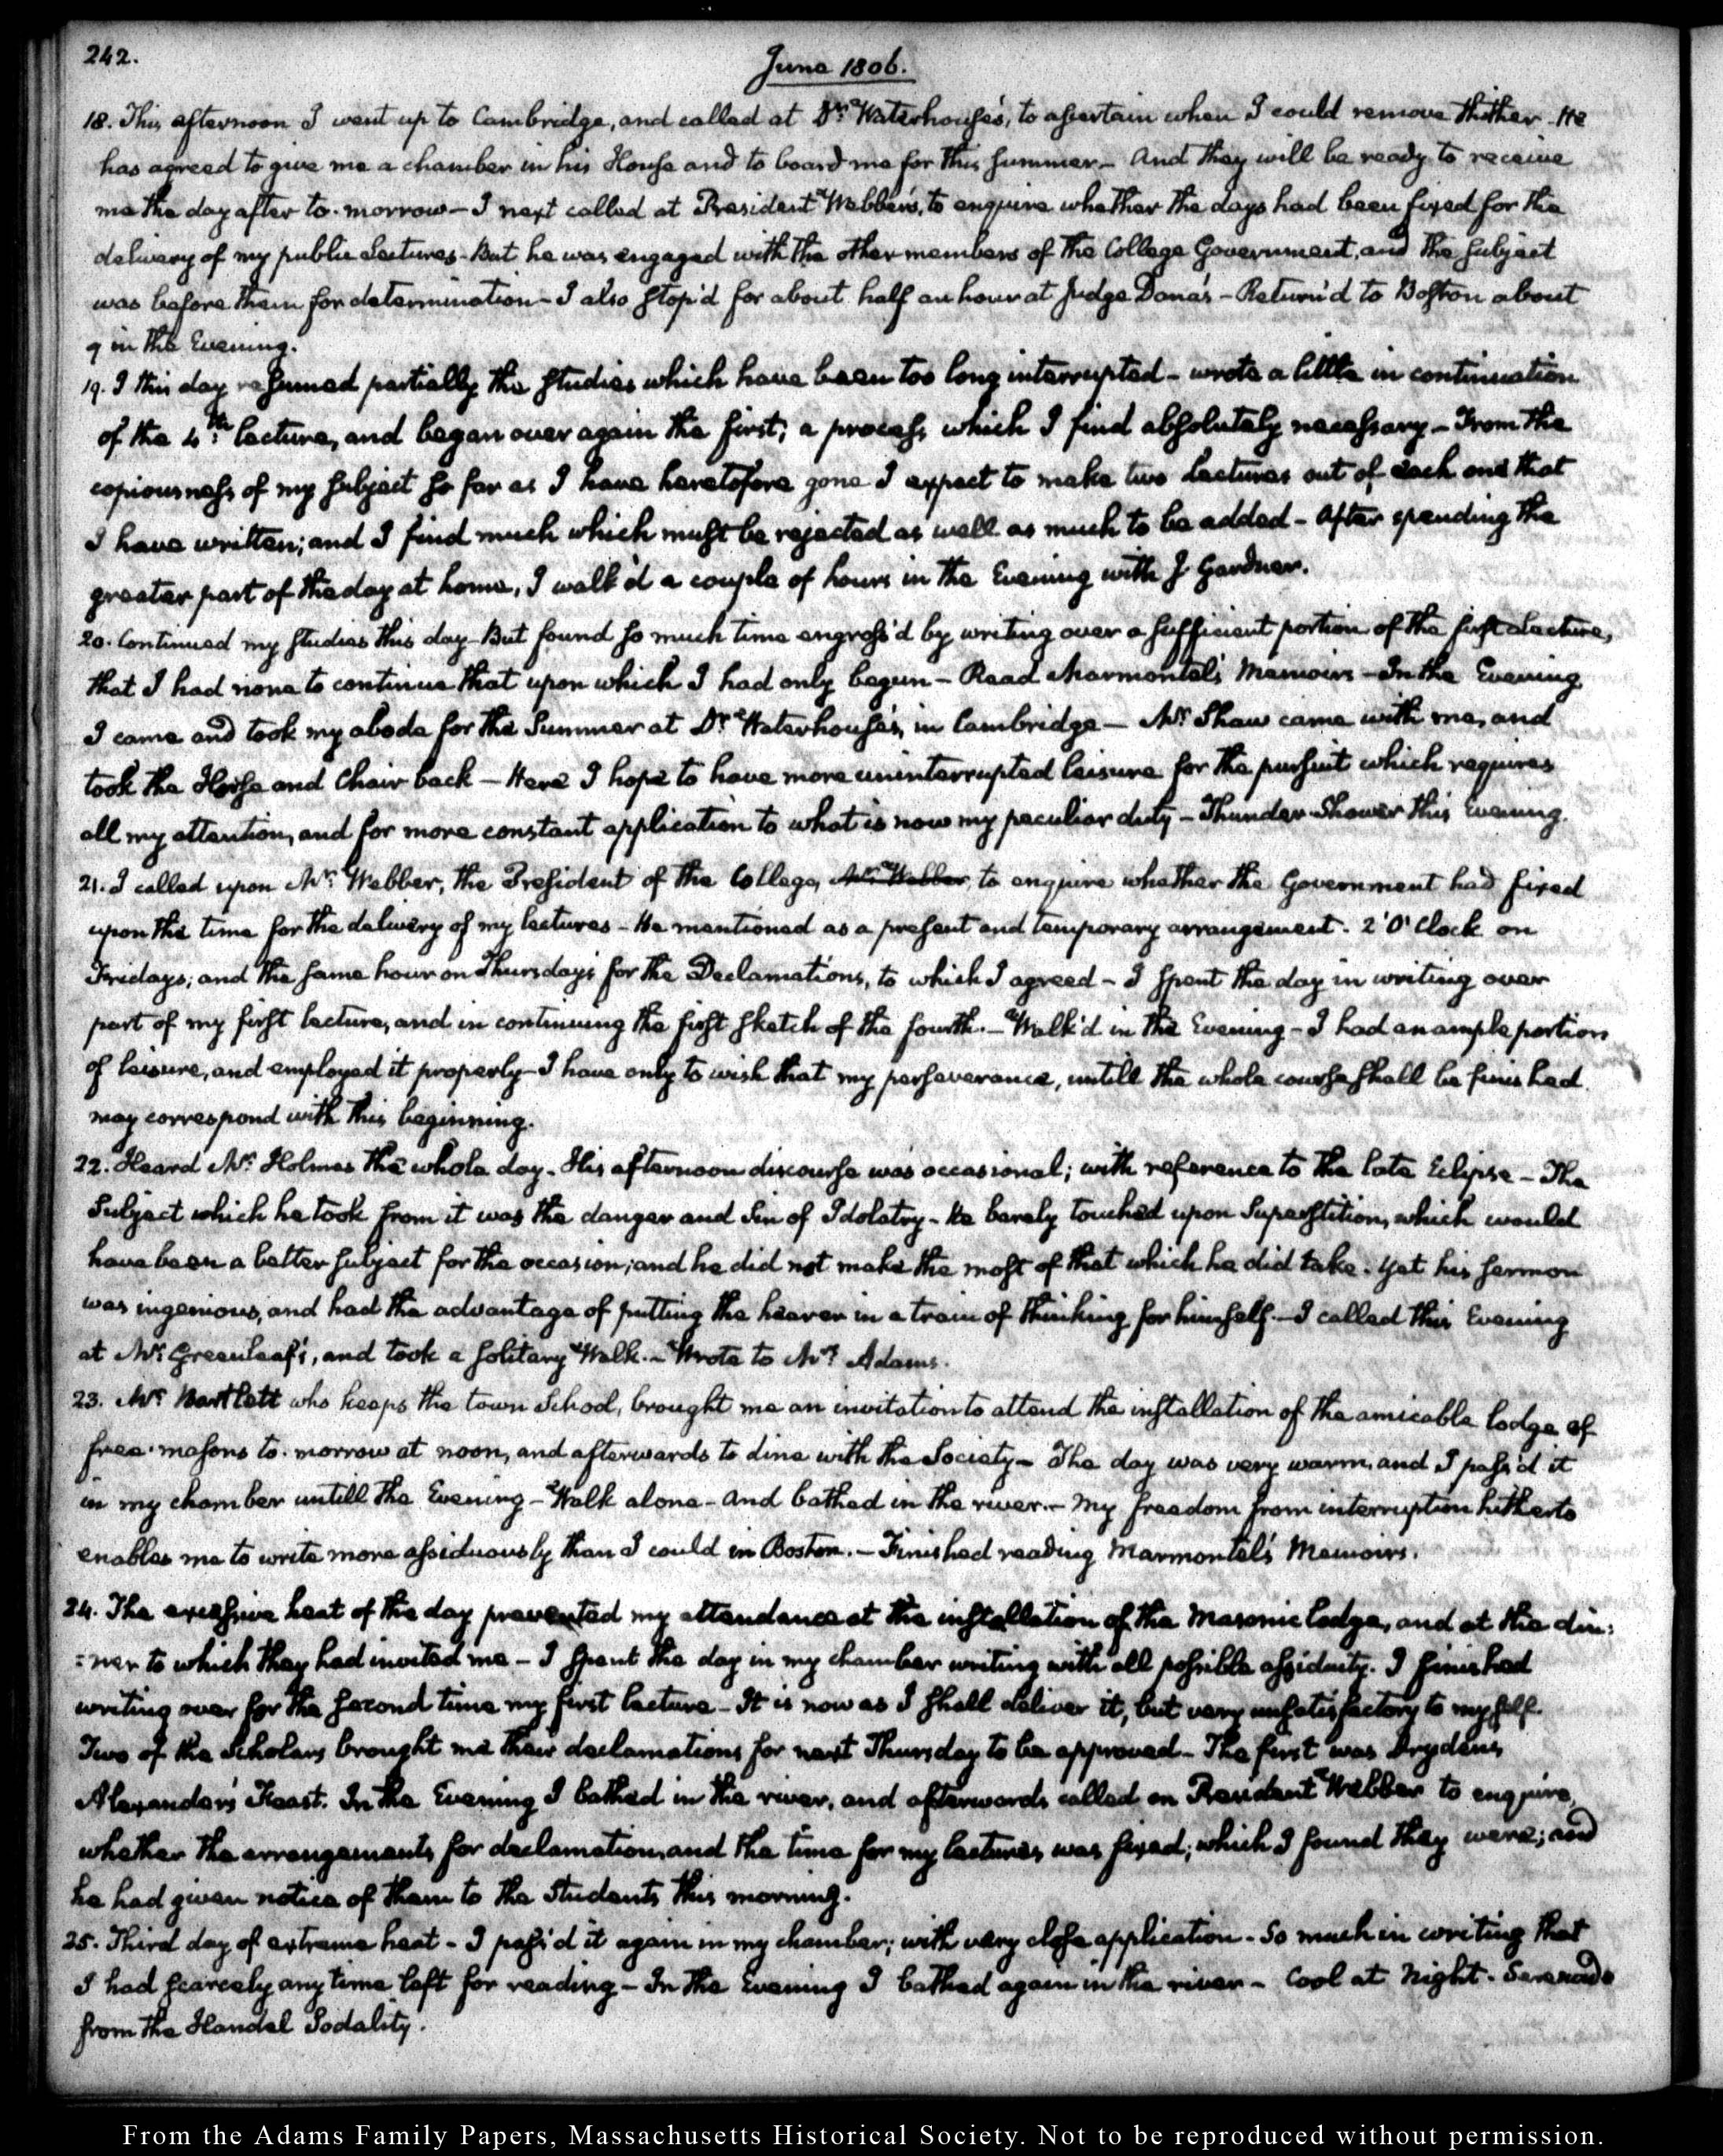 242.
June 1806.
18. This afternoon I went up to Cambridge, and called at Dr. Waterhouse's, to ascertain when I could remove thither. He
has agreed to give me a chamber in his House and to board me for this summer — And they will be ready to receive
me the day after to-morrow — I next called at President Webber's, to enquire whether the days had been fixed for the
delivery of my public Lectures - But he was engaged with the other members of the College Government, and the subject
was before them for determination — I also stop'd for about half an hour at Judge Dana's — Return'd to Boston about
9 in the Evening.
19. I this day resumed partially the studies which have been too long interrupted — wrote a little in continuation
of the 4th. lecture, and began over again the first; a process which I find absolutely necessary — From the
copiousness of my subject so far as I have heretofore gone I expect to make two Lectures out of each one that
I have written; and I find much which must be rejected as well as much to be added — After spending the
greater part of the day at home, I walk'd a couple of hours in the Evening with J Gardner.
20. Continued my studies this day - But found so much time engross'd by writing over a sufficient portion of the first Lecture,
that I had none to continue that upon which I had only begun — Read Marmontel's Memoirs — In the Evening
I came and took my abode for the Summer at Dr. Waterhouse's, in Cambridge — Mr. Shaw came with me, and
took the Horse and Chair back — Here I hope to have more uninterrupted leisure for the pursuit which requires
all my attention, and for more constant application to what is now my peculiar duty — Thunder-Shower this Evening.
21. I called upon Mr. Webber, the President of the College, Mr. Webber, to enquire whether the Government had fixed
upon the time for the delivery of my lectures - He mentioned as a present and temporary arrangement. 2 'O' Clock on
Fridays; and the same hour on Thursdays for the Declamations, to which I agreed — I spent the day in writing over
part of my first lecture, and in continuing the first sketch of the fourth. — Walk'd in the Evening — I had an ample portion
of leisure, and employed it properly — I have only to wish that my perseverance, untill the whole course shall be finished
may correspond with this beginning.
22. Heard Mr. Holmes the whole day. His afternoon discourse was occasional; with reference to the late Eclipse — The
Subject which he took from it was the danger and Sin of Idolatry — He barely touched upon Superstition, which would
have been a better subject for the occasion; and he did not make the most of that which he did take. Yet his sermon
was ingenious, and had the advantage of putting the hearer in a train of thinking for himself. — I called this Evening
at Mr. Greenleaf's, and took a solitary Walk. — Wrote to Mrs. Adams.
23. Mr. Bartlett who keeps the town School, brought me an invitation to attend the installation of the amicable lodge of
free-masons to-morrow at noon, and afterwards to dine with the Society — The day was very warm, and I pass'd it
in my chamber untill the Evening — Walk alone — and bathed in the river. — My freedom from interruption hitherto
enables me to write more assiduously than I could in Boston. — Finished reading Marmontel's Memoirs.
24. The excessive heat of the day prevented my attendance at the installation of the Masonic lodge, and at the din:
:ner to which they had invited me — I spent the day in my chamber writing with all possible assiduity. I finished
writing over for the second time my first lecture — It is now as I shall deliver it, but very unsatisfactory to myself.
Two of the Scholars brought me their declamations for next Thursday to be approved — The first was Drydens
Alexander's Feast. In the Evening I bathed in the river, and afterwards called on President Webber to enquire,
whether the arrangements for declamation, and the time for my lectures was fixed; which I found they were; and
he had given notice of them to the Students this morning.
25. Third day of extreme heat — I pass'd it again in my chamber; with very close application — So much in writing that
I had scarcely any time left for reading — In the Evening I bathed again in the river — Cool at Night. Serenade
from the Handel Sodality.
From the Adams Family Papers, Massachusetts Historical Society. Not to be reproduced without permission.